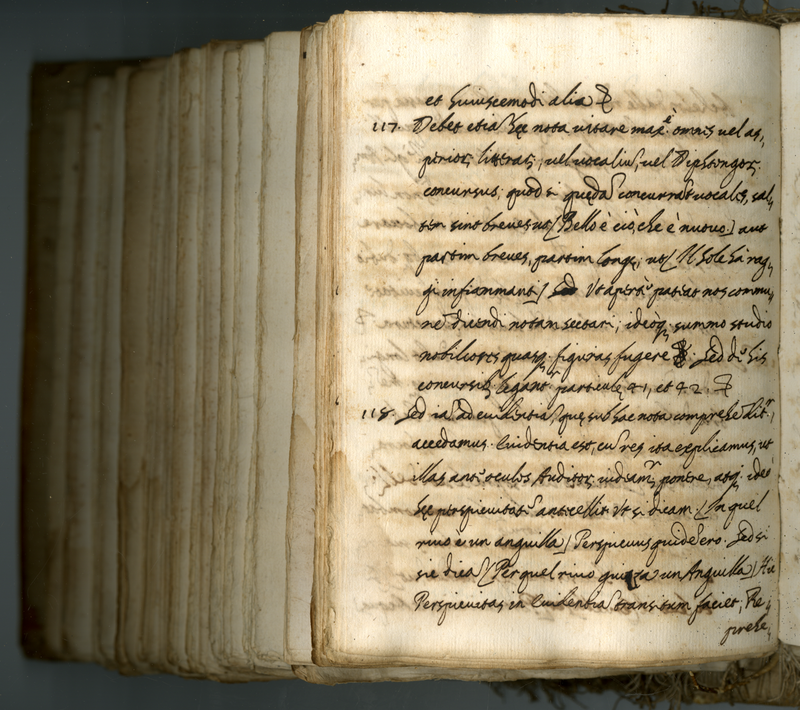 et huiuscemodi alia
117. Debet etiā hęc nota vitare maxᵉ. omnis vel as,
perior, litteras, vel vocaliū, vel Diphtongor,
concursus; quod si quędā concurrāt vocales, sal,
tem sint breves ut (Bello è ciò, che è nuovo.) aut
partim breves, partim longę, ut (Il Sole hà rag,
gi infiammanti) Ut apertᵉ patiat nos commu,
nē dicendi notam sectari; ideoq. summo studio
nobiliores quasq. figuras fugere. Sed dᵉ his
concursib. legant particulę 41, et 42.
118. Sed iā ad evidentiā, quę sub hac nota comprehēdit,
accedamus. Evidentia est, cū res ita explicamus, ut
illas antᵉ oculos Auditor, videamʳ ponere, atq. ideò
hęc perspicuitatē antecellit. Ut si dicam. (In quel
rivo è un anguilla) Perspicuus quidē ero. Sed si
sie dicā (Per quel rivo guizza un Anguilla) Hic
Perspicuitas in Evidentiā transitum faciet; Re,
prehe,